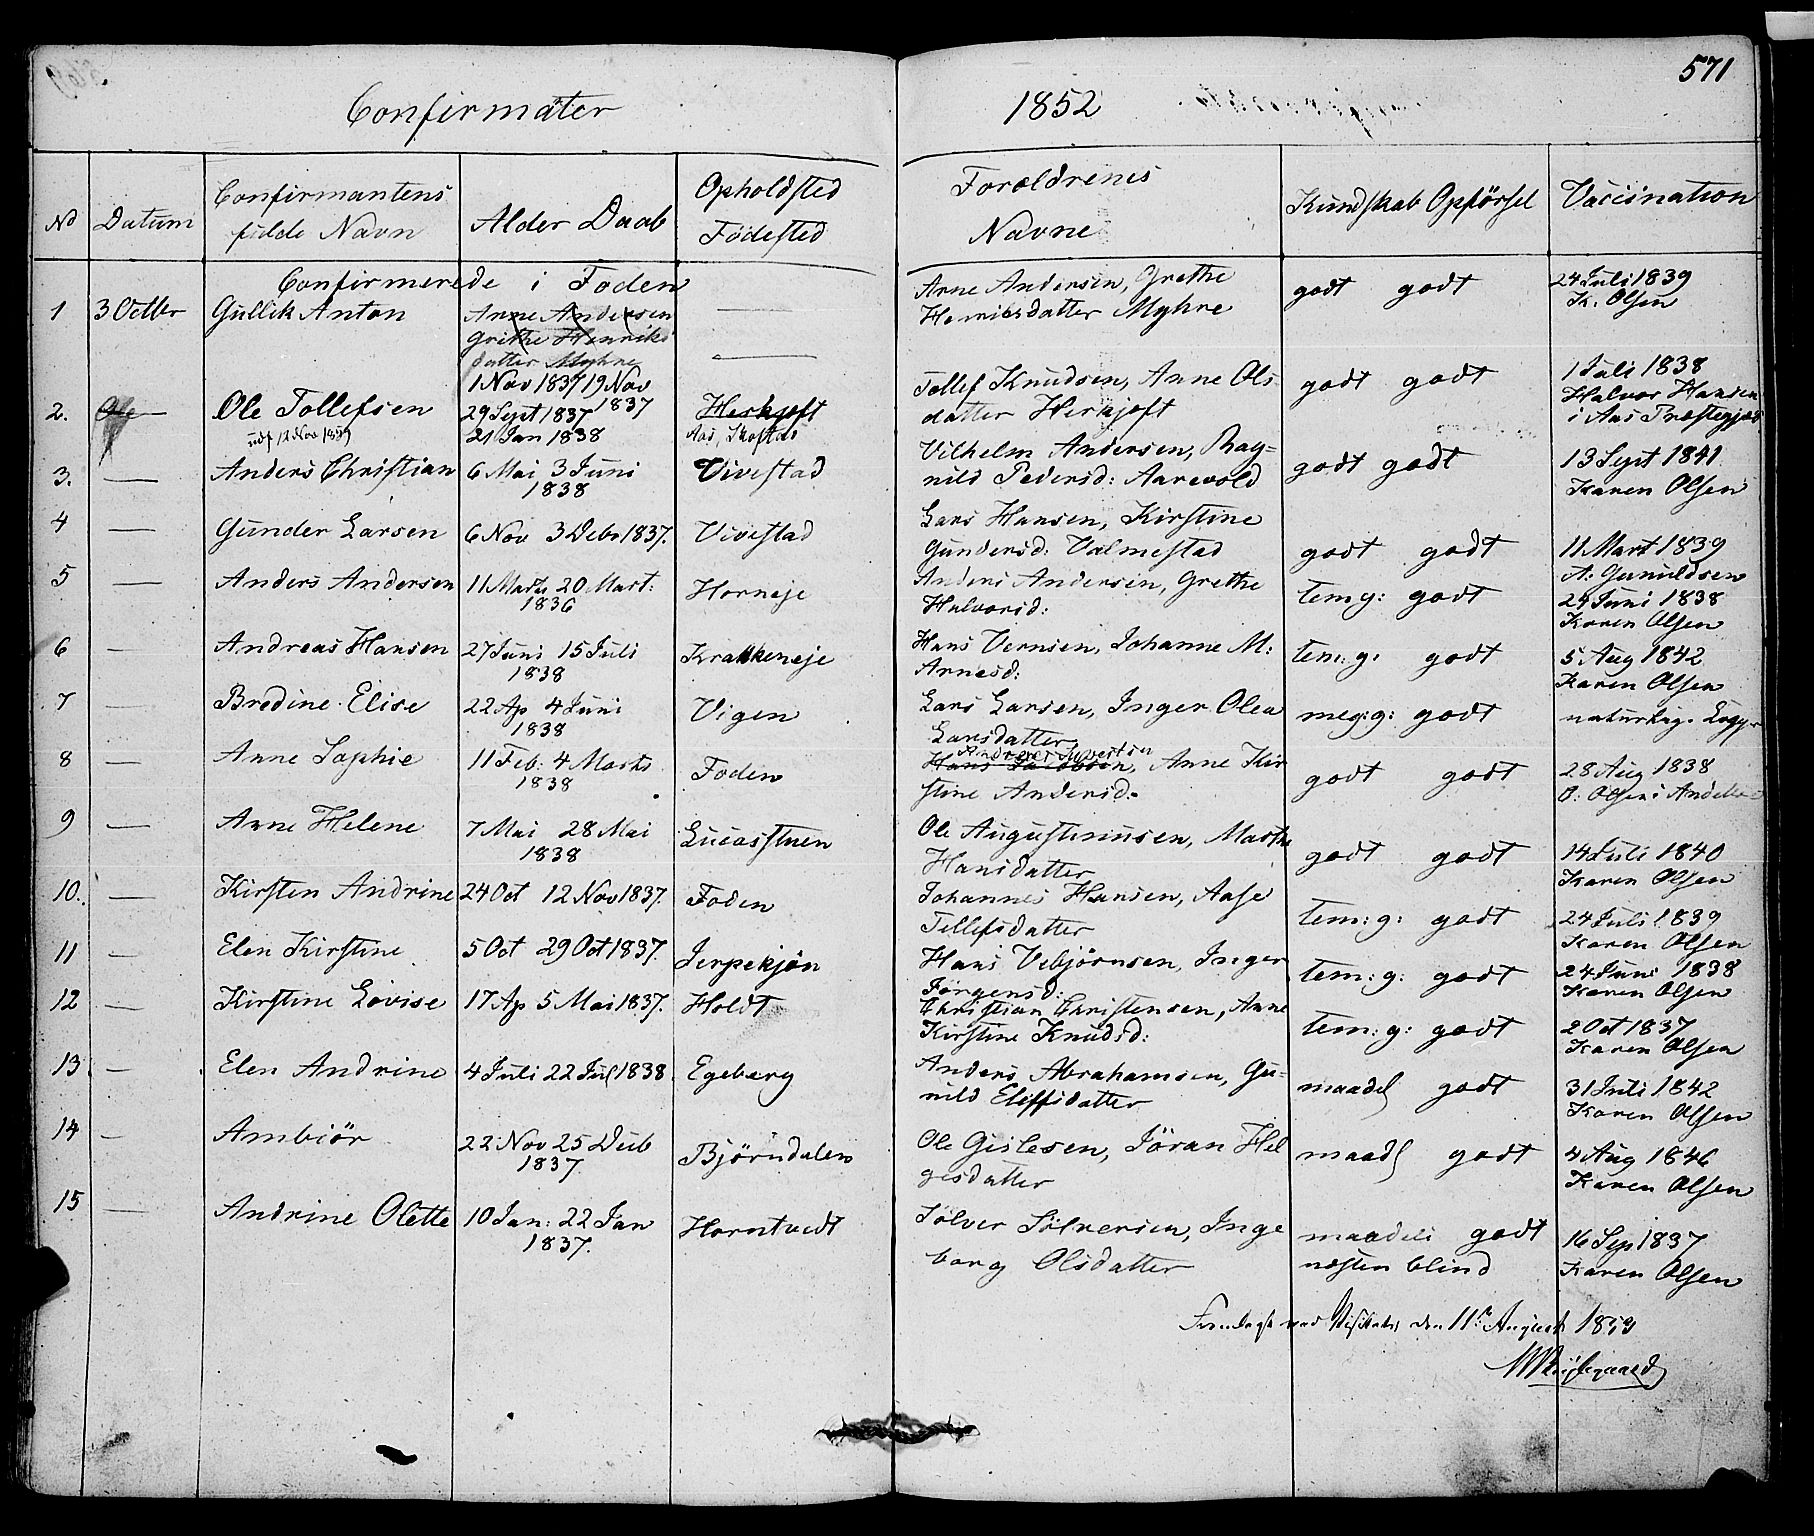 571
Confirmater 1852
No Datum Confirmantens fulde Navn Alder Daab Opholdsted Fødested Forældrenes Navne Kundskab Opførsel Vaccination
Confirmerede i Foden
1 3 Octbr Gullik Anton Arne Andersen Grethe Henriks datter Myhre 1 Nov 1837 19 Nov 1837 — Arne Andersen, Grethe Henriksdatter Myhre godt godt 24 Juli 1839 K. Olsen
2. Ole Tollefsen udf 12 Nov 1859 29 Sept 1837 21 Jan 1838 Herkjøft Aas, Skofstad Tollef Knudsen, Anne Ols datter Herkjøft godt godt 1 Juli 1838 Halvor Hansen i Aas Præstegjæld
3. — Anders Christian 6 Mai 3 Juni 1838 Vivestad Vilhelm Andersen, Rag= nild Pedersd: Aarevold godt godt 13 Sept 1841 Karen Olsen
4 — Gunder Larsen 6 Nov 3 Debr 1837. Vivestad Lars Hansen, Kirstine Gundersd: Valmestad godt godt 11 Mart 1839 A: Gunuldsen
5 — Anders Andersen 11 Marts 20 Mart: 1836 Horneje Anders Andersen, Grethe Halvorsd: temg: godt 24 Juni 1838 Karen Olsen
6 — Andreas Hansen 27 Juni 15 Juli 1838 Krakkeneje Hans Vernsen, Johanne M: Arnesd: tem: g: godt 5 Aug 1842 Karen Olsen
7 — Bredine Elise 22 Ap 4 Juni 1838 Vigen Lars Larsen, Inger Olea Larsdatter meg: g: godt naturlig.
8 — Anne Sophie 11 Feb: 4 Marts 1838 Foden Hans Jacobsen, Anne Kir stine Andersd: godt godt 28 Aug 1838 O: Olsen i
9 — Anne Helene 7 Mai 28 Mai 1838 Lucasstuen Ole Augustinusen, Marthe Hansdatter godt godt 14 Juli 1840 Karen Olsen
10. — Kirsten Andrine 24 Oct 12 Nov 1837. Foden Johannes Hansen, Aase Tellefsdatter tem: g: godt 24 Juli 1839 Karen Olsen
11 — Elen Kirstine 5 Oct 29 Oct 1837. Jerpekjøn Hans Vebjørnsen, Inger Jørgensd: tem: g: godt 24 Juni 1838 Karen Olsen
12 — Kirstine Lovise 17 Ap 5 Mai 1837. Holdt Christian Christensen, Anne Kirstine Knudsd: tem: g: godt 2 Oct 1837 Karen Olsen
13 — Elen Andrine 4 Juli 22 Jul 1838. Egeberg Anders Abrahamsen, Gu= nild Eliffsdatter maadel godt 31 Juli 1842 Karen Olsen
14 — Ambiør 22 Nov 25 Deb 1837. Bjørndalen Ole Gislesen, Jøran Hel gesdatter maadl godt 4 Aug 1846 Karen Olsen
15 — Andrine Olette 10 Jan: 22 Jan 1837. Horntvedt Sølver Sølversen, Inge borg Olsdatter maadeli godt næsten blind 16 Sep 1837 Karen Olsen
Fremlagt ved Visitats den 11te August 1853